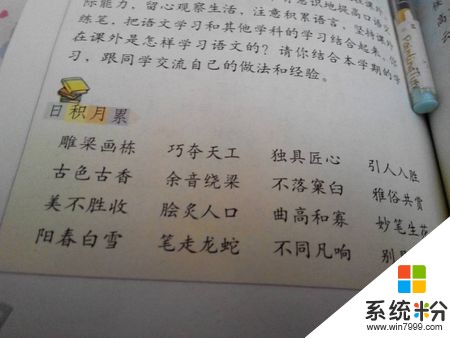 际能力，留心观察生活，注意积累语言，坚持课外
练笔，把语文学习和其他学科的学习结合起来。你
在课外是怎样学习语文的？请你结合本学期的学
习，跟同学交流自己的做法和经验。
日积月累
雕梁画栋 巧夺天工 独具匠心 引人入胜
古色古香 余音绕梁 不落窠臼 雅俗共赏
美不胜收 脍炙人口 曲高和寡 妙笔生花
阳春白雪 笔走龙蛇 不同凡响 别
系统粉
www.win7999.com